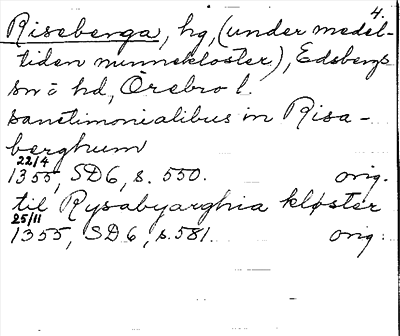 4.
Riseberga, hg, (under medel-
tiden nunnekloster), Edsbergs
sn o hd, Örebro l.
sanctimonialibus in Risa-
berghum
22/4
1355, SD 6, s. 550. orig.
til Rysabyarghia kloster
25/11
1355, SD 6, s. 581. orig.